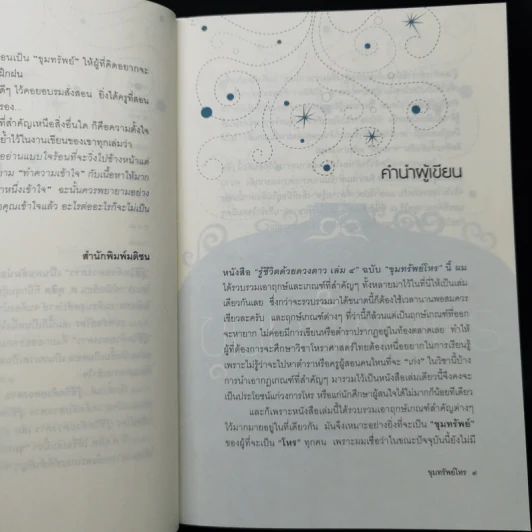 อนเป็น "ขุมทรัพย์" ให้ผู้ที่คิดอยากจะ
ฝึกฝน
ดีๆ ไว้คอยอบรมสั่งสอน ยิ่งได้ครูที่สอน
รอง...
ที่สำคัญเหนือสิ่งอื่นใด ก็คือความตั้งใจ
ย้ำไว้ในงานเขียนของเขาทุกเล่มว่า
อย่านแบบใจร้อนที่จะวิ่งไปข้างหน้าแต่
าม "ทำความเข้าใจ" กับเนื้อหาให้มาก
าหนึ่งเข้าใจ" ฉะนั้นควรพยายามอย่าง
งคุณเข้าใจแล้ว อะไรต่ออะไรก็จะไม่เป็น
สำนักพิมพ์มติชน
คำนำผู้เขียน
หนังสือ "รู้ชีวิตด้วยดวงดาว เล่ม ๔" ฉบับ "ขุมทรัพย์โหร" นี้ ผม
ได้รวบรวมเอาฤกษ์และเกณฑ์ที่สำคัญๆ ทั้งหลายมาไว้ในที่นี้ให้เป็นเล่ม
เดียวกันเลย ซึ่งกว่าจะรวบรวมมาได้ขนาดนี้ก็ต้องใช้เวลานานพอสมควร
เชียวละครับ และฤกษ์เกณฑ์ต่างๆ ที่ว่านี้ก็ล้วนแต่เป็นฤกษ์เกณฑ์ที่ออก
จะหายาก ไม่ค่อยมีการเขียนหรือตำราปรากฏอยู่ในท้องตลาดเลย ทำให้
ผู้ที่ต้องการจะศึกษาวิชาโหราศาสตร์ไทยต้องเหนื่อยยากในการเรียนรู้
เพราะไม่รู้ว่าจะไปหาตำราหรือครูผู้สอนคนไหนที่จะ "เก่ง" ในวิชานี้บ้าง
การนำเอากฎเกณฑ์ที่สำคัญๆ มารวมไว้เป็นหนังสือเล่มเดียวนี้จึงคงจะ
เป็นประโยชน์แก่วงการโหร หรือแก่นักศึกษาผู้สนใจได้ไม่มากก็น้อยทีเดียว
และก็เพราะหนังสือเล่มนี้ได้รวบรวมเอาฤกษ์เกณฑ์สำคัญต่างๆ
ไว้มากมายอยู่ในที่เดียวกัน มันจึงเหมาะอย่างยิ่งที่จะเป็น "ขุมทรัพย์"
ของผู้ที่จะเป็น "โหร" ทุกคน เพราะผมเชื่อว่าในขณะปัจจุบันนี้ยังไม่มี
ขุมทรัพย์โหร ๙